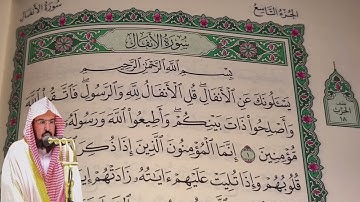 سُورَةُ الْأَنفَالِ
الجُزْءُ التَّاسِعُ
سُورَةُ الْأَنفَالِ
بِسْمِ اللَّهِ الرَّحْمَٰنِ الرَّحِيمِ
يَسْـَٔلُونَكَ عَنِ الْأَنفَالِ ۖ قُلِ الْأَنفَالُ لِلَّهِ وَالرَّسُولِ ۖ فَاتَّقُوا اللَّهَ
وَأَصْلِحُوا ذَاتَ بَيْنِكُمْ ۖ وَأَطِيعُوا اللَّهَ وَرَسُولَهُ
مُّؤْمِنِينَ ١ إِنَّمَا الْمُؤْمِنُونَ الَّذِينَ إِذَا ذُكِرَ
قُلُوبُهُمْ وَإِذَا تُلِيَتْ عَلَيْهِمْ ءَايَاتُهُ زَادَتْهُمْ
نصف
الحزب
١٨